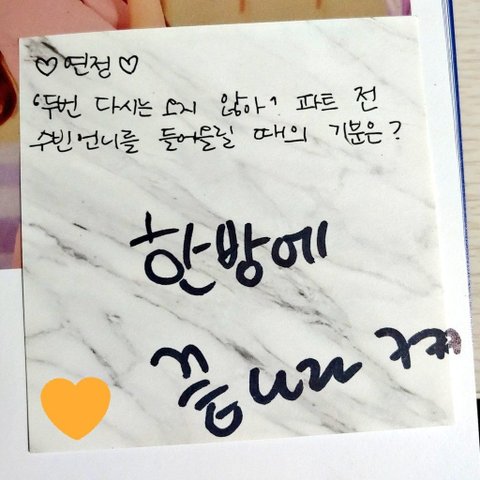 ♡연정♡
'두번 다시는 오지 않아' 파트 전
수빈언니를 들어올릴 때의 기분은?
한방에
ㅋㅋㅋ